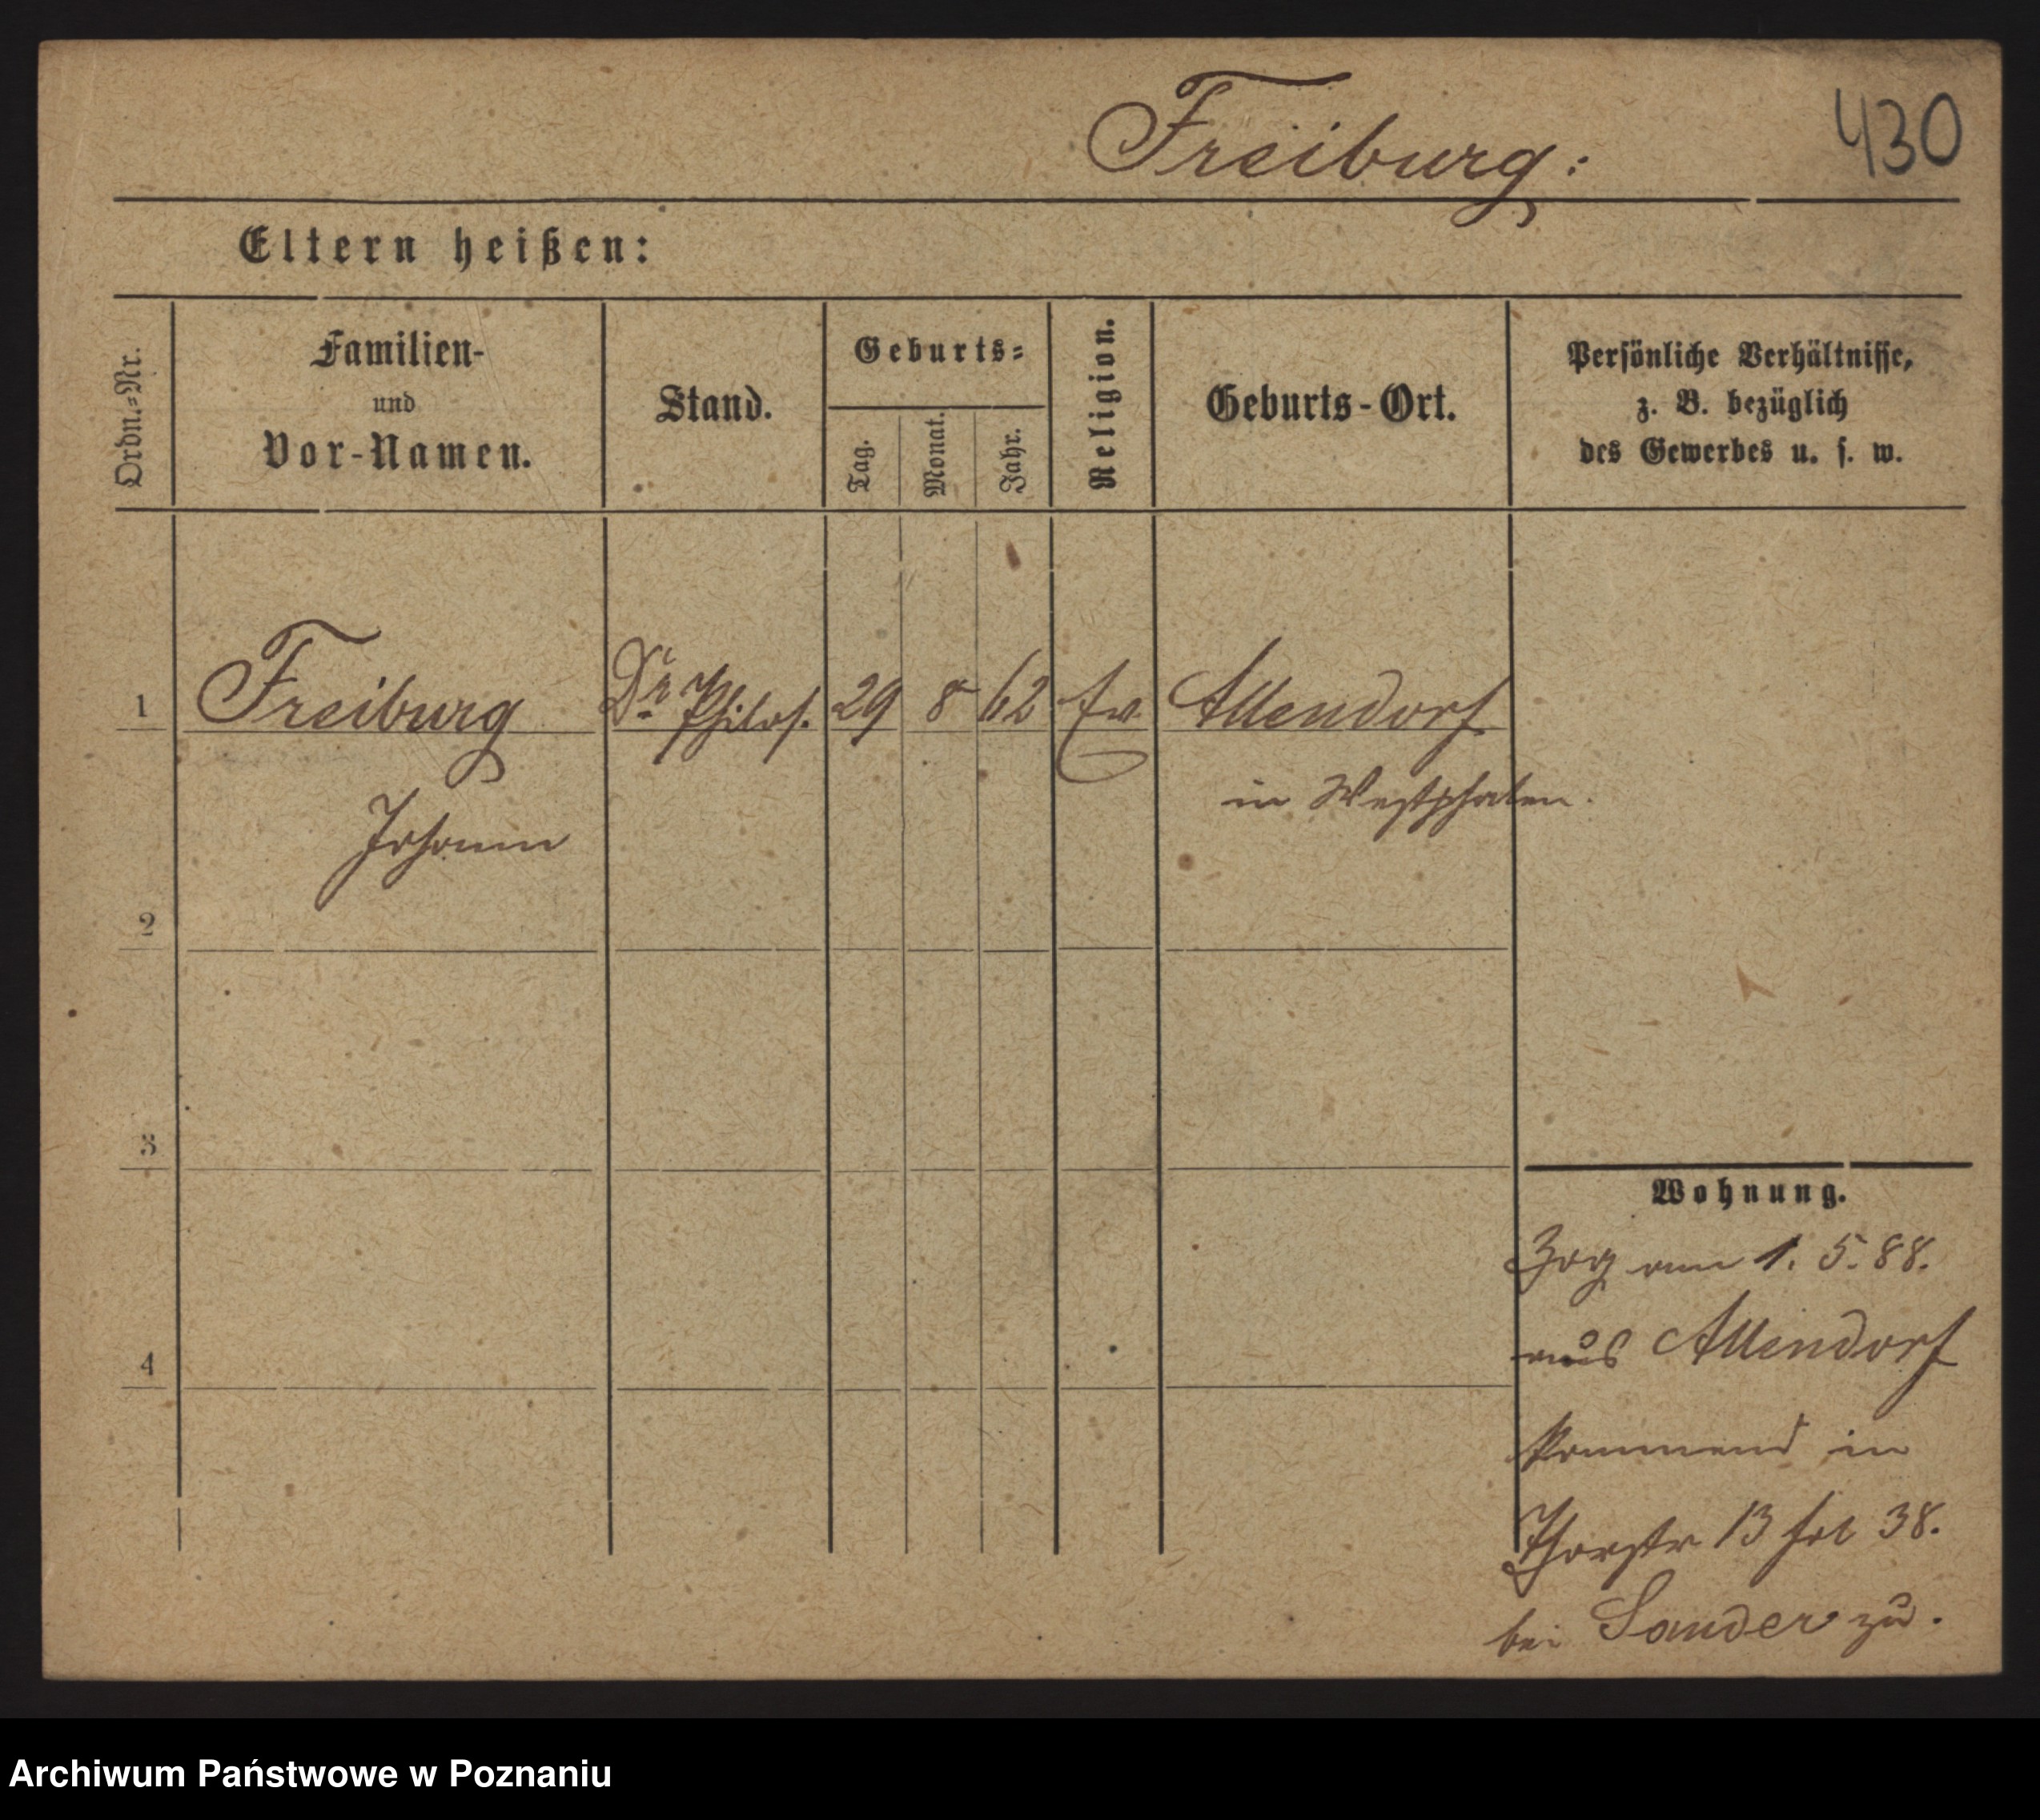 Freiburg:
430
Eltern heißen:
Ordn.-Nr.
Familien-
und
Vor-Namen.
Stand.
Geburts-
Tag.
Monat.
Jahr.
Religion.
Geburts-Ort.
Persönliche Verhältnisse,
z. B. bezüglich
des Gewerbes u. s. w.
1 Freiburg Dr. Philos. 29 8 62 Ev Allendorf
in Westphalen.
Johann
2
3
4
Wohnung.
Zog am 1. 5. 88.
aus Allendorf
kommend in
Thorstr 13 38.
bei Sander zu.
Archiwum Państwowe w Poznaniu